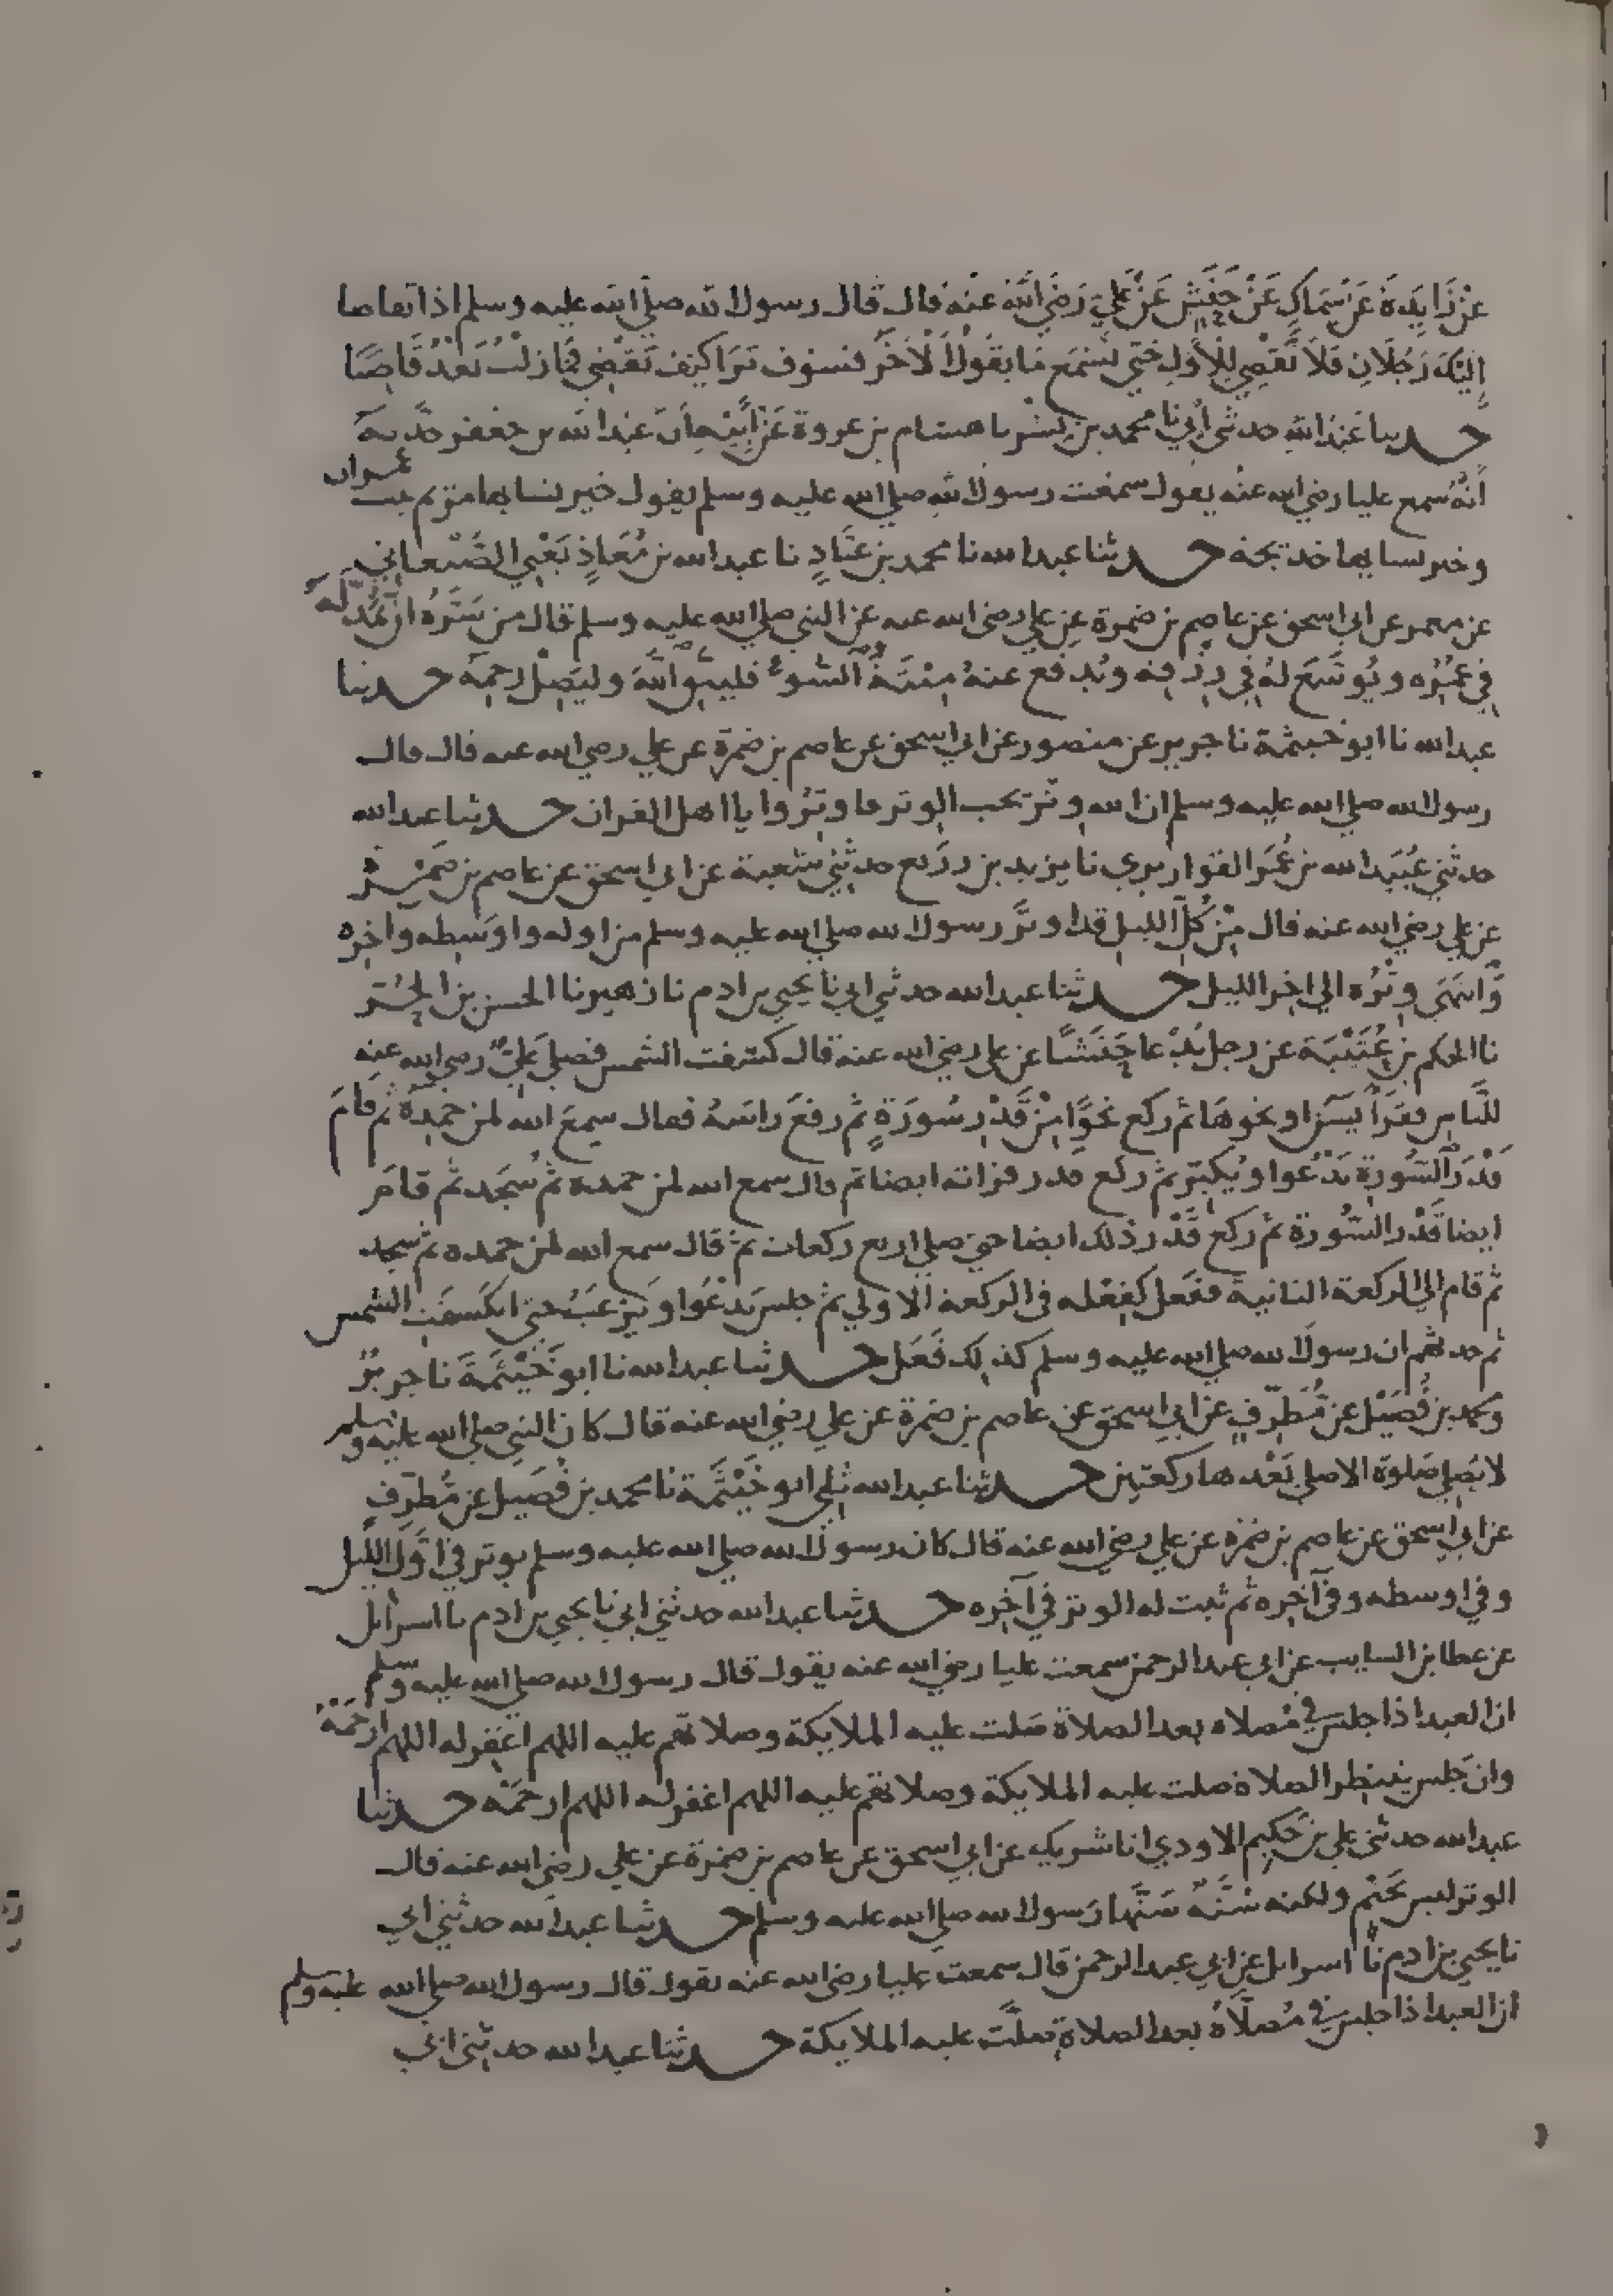 عَنْ زَايِدَةَ عَنْ سِمَاكٍ عَنْ حَنَشٍ عَنْ عَلِيٍّ رَضِيَ اللهُ عَنْهُ قال قال رسول الله صلى الله عليه وسلم اذا تقاضا
إِلَيْكَ رَجُلَانِ فَلَا تَقْضِي لِلْأَوَّلِ حَتَّى تَسْمَعَ مَا يَقُولُ الْآخَرُ فَسَوْفَ تَرَا كَيْفَ تَقْضِي فَمَا زِلْتُ بَعْدُ قَاضِيًا
حدثنا عبد الله حدثني أبي نا محمد بن بشر نا هشام بن عروة عن أبيه أن عبد الله بن جعفر حدثه
أنه سمع عليا رضي الله عنه يقول سمعت رسول الله صلى الله عليه وسلم يقول خير نسايها مريم بنت عمران
وخير نسايها خديجة حدثنا عبد الله نا محمد بن عَبَّادٍ نا عبد الله بن مُعَاذٍ يَعْنِي الصَّنْعَانِي
عن معمر عن ابي اسحق عن عاصم بن ضمرة عن علي رضي الله عنه عن النبي صلى الله عليه وسلم قال من سَرَّهُ ان يُمَدَّ لَهُ
فِي عُمُرِهِ ويُوَسَّعَ لهُ في رِزْقِه ويُدْفع عنهُ مِيْتَةُ السُّوءُ فليتق اللهَ وليَصِلْ رَحِمَهُ حدثنا
عبد الله نا ابو خيثمة نا جرير عن منصور عن ابي اسحق عن عاصم بن ضمرة عن علي رضي الله عنه قال قال
رسول الله صلى الله عليه وسلم ان الله وِترٌ يحب الوتر فاوتِرُوا يا اهل القران حدثنا عبد الله
حدثني عُبَيدالله بن عُمَر القواريري نا يزيد بن زُرَيع حدثني شعبة عن ابي اسحق عن عاصم بن ضَمْرَة
عن علي رضي الله عنه قال مِنْ كُلِّ الليل قد اوتَرَ رسول الله صلى الله عليه وسلم من اوله واوسَطه واخِره
وَانتهَى وِتْرُه الى اخِر الليل حدثنا عبد الله حدثني ابي نا يحيى بن ادم نا زهير نا الحسن بن الحُرِّ
نا الحكم بن عُتَيْبَة عن رجل يُدْعا حَنَشًا عن علي رضي الله عنه قال كسفت الشمس فصلى عَلِيٌّ رضي الله عنه
للنَّاسِ فقرَأَ يسۤ او نحوهَا ثم ركع نحوًا مِنْ قَدْرِ سُورَةٍ ثم رفع رَاسَهُ فقال سمِعَ الله لمن حَمِدَهُ ثم قَامَ
قَدْرَ السُّورة يَدْعُوا ويُكبِّر ثم ركع قدر قراته ايضا ثم قال سمع الله لمن حمده ثم سَجَد ثم قامَ
ايضا قَدْرَ السُّورة ثم ركع قَدْرَ ذلك ايضا حتى صلى اربع ركعات ثم قال سمع الله لمن حمده ثم سجد
ثم قام الى الركعة الثانية ففعل كفِعْلِه في الركعة الاولى ثم جلس يَدْعُوا ويَرْغبُ حتى انكَسَفَتِ الشمس
ثم حدثهم ان رسول الله صلى الله عليه وسلم كذلك فَعَل حدثنا عبد الله نا ابو خَيْثَمَةَ نا جريرٌ
ومحمد بن فُضَيْل عن مُطَرِّفٍ عن ابي اسحق عن عاصم بن ضمرة عن علي رضي الله عنه قال كان النبي صلى الله عليه وسلم
لا يُصلي صلوة الا صلى بَعْدها ركعتين حدثنا عبد الله ثنى ابو خَيْثَمَة نا محمد بن فُضَيل عن مُطَرِّفٍ
عن ابي اسحق عن عاصم بن ضمرة عن علي رضي الله عنه قال كان رسول الله صلى الله عليه وسلم يوتر في اوَّل الليل
وفي اوسطه وفي آخِره ثم ثبت له الوتر في آخره حدثنا عبد الله حدثني ابي نا يحيى بن ادم نا اسرائل
عن عطا بن السايب عن ابي عبد الرحمن سمعت عليا رضي الله عنه يقول قال رسول الله صلى الله عليه وسلم
ان العبد اذا جلس في مُصلاه بعد الصلاة صَلت عليه الملايكة وصلاتهم عليه اللهم اغفر له اللهم ارحَمْهُ
وان جلس ينتظر الصلاة صلت عليه الملايكة وصلاتهم عليه اللهم اغفر له اللهم ارحَمْه حدثنا
عبد الله حدثني علي بن حَكِيم الاودي انا شريك عن ابي اسحق عن عاصم بن ضمرة عن علي رضي الله عنه قال
الوتر ليس بحَتْمٍ ولكنه سُنَّةٌ سَنَّها رَسول الله صلى الله عليه وسلم حدثنا عبد الله حدثني ابي
نا يحيى بن ادم نا اسرائل عن ابي عبد الرحمن قال سمعت عليا رضي الله عنه يقول قال رسول الله صلى الله عليه وسلم
ان العبد اذا جلس في مُصلَّاهُ بعد الصلاة صلَّت عليه الملايكة حدثنا عبد الله حدثني ابي